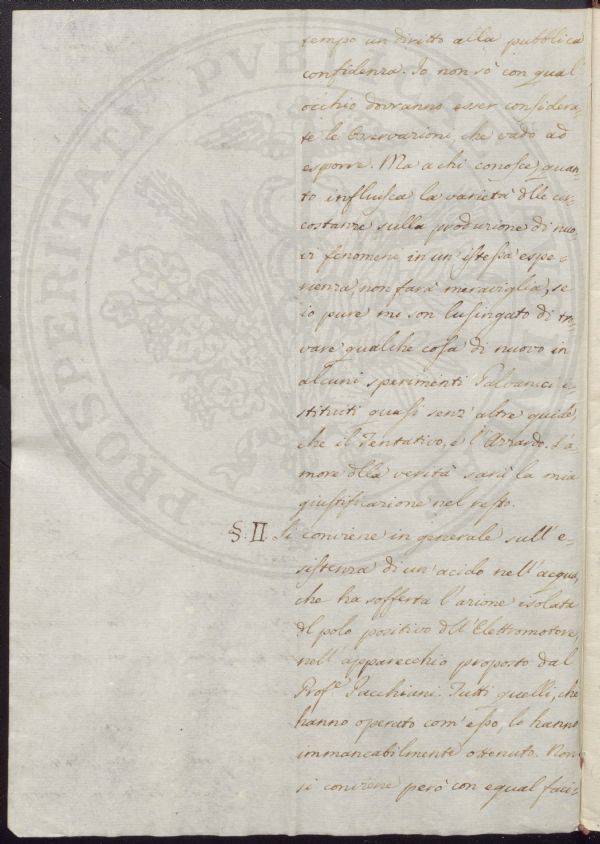 tempo un diritto alla pubblica
confidenza. Io non sò con qual
occhio dovranno esser considera-
te le Osservazioni, che vado ad
esporre. Ma a chi conosce, quan-
to influisca la varietà dlle cir-
costanze sulla produzione di nuo-
vi fenomeni in un' istessa espe-
rienza, non farà meraviglia, se
io pure mi son lusingato di tro-
vare qualche cosa di nuovo in
alcuni sperimenti Galvanici i-
stituiti quasi senz' altre guide,
che il Tentativo, e l'Azzardo. L'a-
more dlla verità sarà la mia
giustificazione nel resto.
§. II. Si conviene in generale sull' e-
sistenza di un' acido nell' acqua,
che ha sofferta l'azione isolata
dl polo positivo dll' Elettromotore,
nell' apparecchio proposto dal
Profe. Pacchiani. Tutti quelli, che
hanno operato com' esso, lo hanno
immancabilmente ottenuto. Non
si conviene però con egual faci-
PROSPERITATI PVBLICAE